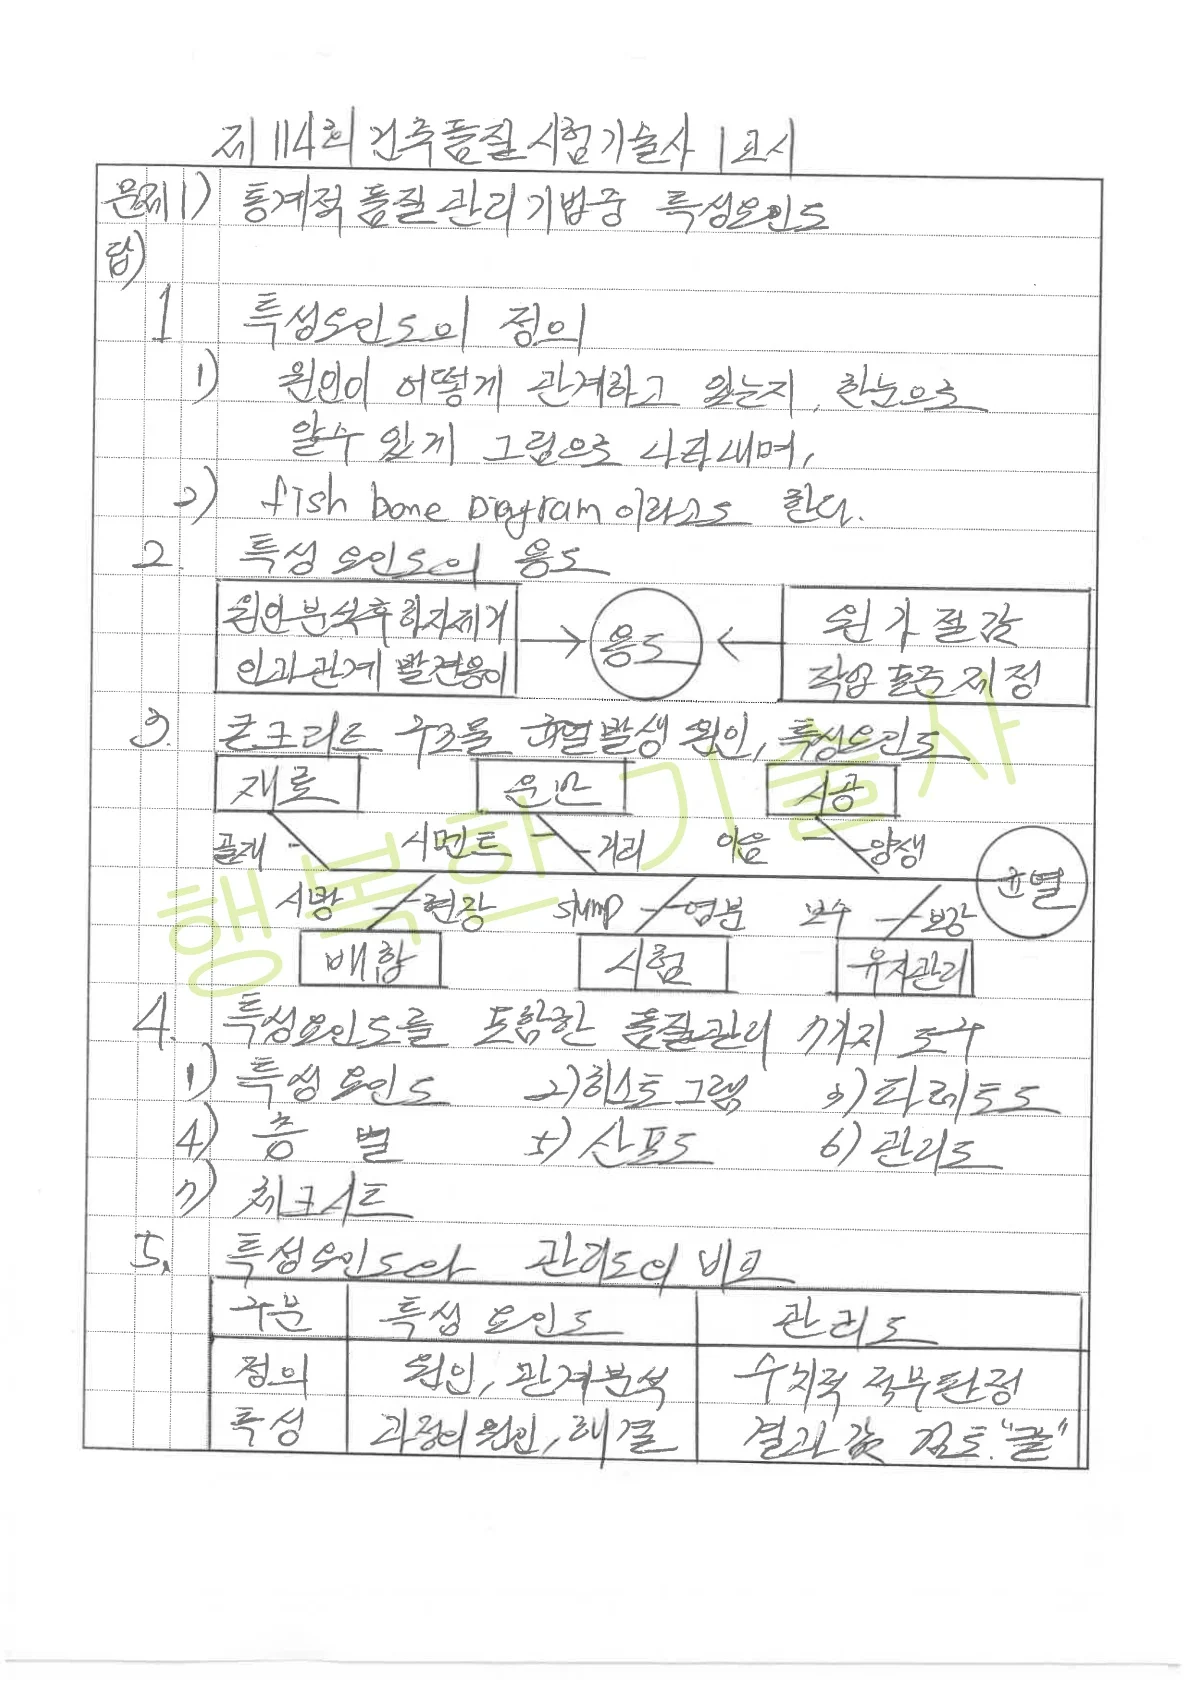 제114회 건축품질시험기술사 1교시
문제1) 통계적 품질관리기법중 특성요인도
답)
1 특성요인도의 정의
1) 원인이 어떻게 관계하고 있는지, 한눈으로
알수 있게 그림으로 나타내며,
2) fish bone Diagram이라고도 한다.
2. 특성요인도의 용도
원인분석후하자제거 원가절감
용도
인과관계 발견용이 작업표준제정
3. 콘크리트 구조물 균열발생 원인, 특성요인도
재료 운반 시공
골재 시멘트 거리 이음 양생
균열
시방 현장 slump 염분 보수 보강
배합 시험 유지관리
4. 특성요인도를 포함한 품질관리 7가지 도구
1) 특성요인도 2) 히스토그램 3) 파레토도
4) 층 별 5) 산포도 6) 관리도
7) 체크시트
5. 특성요인도와 관리도의 비교
구분 특성요인도 관리도
정의 원인, 관계분석 수치적 적부판정
특성 과정의 원인, 해결 결과 값 검토. "끝"
행복한기술사